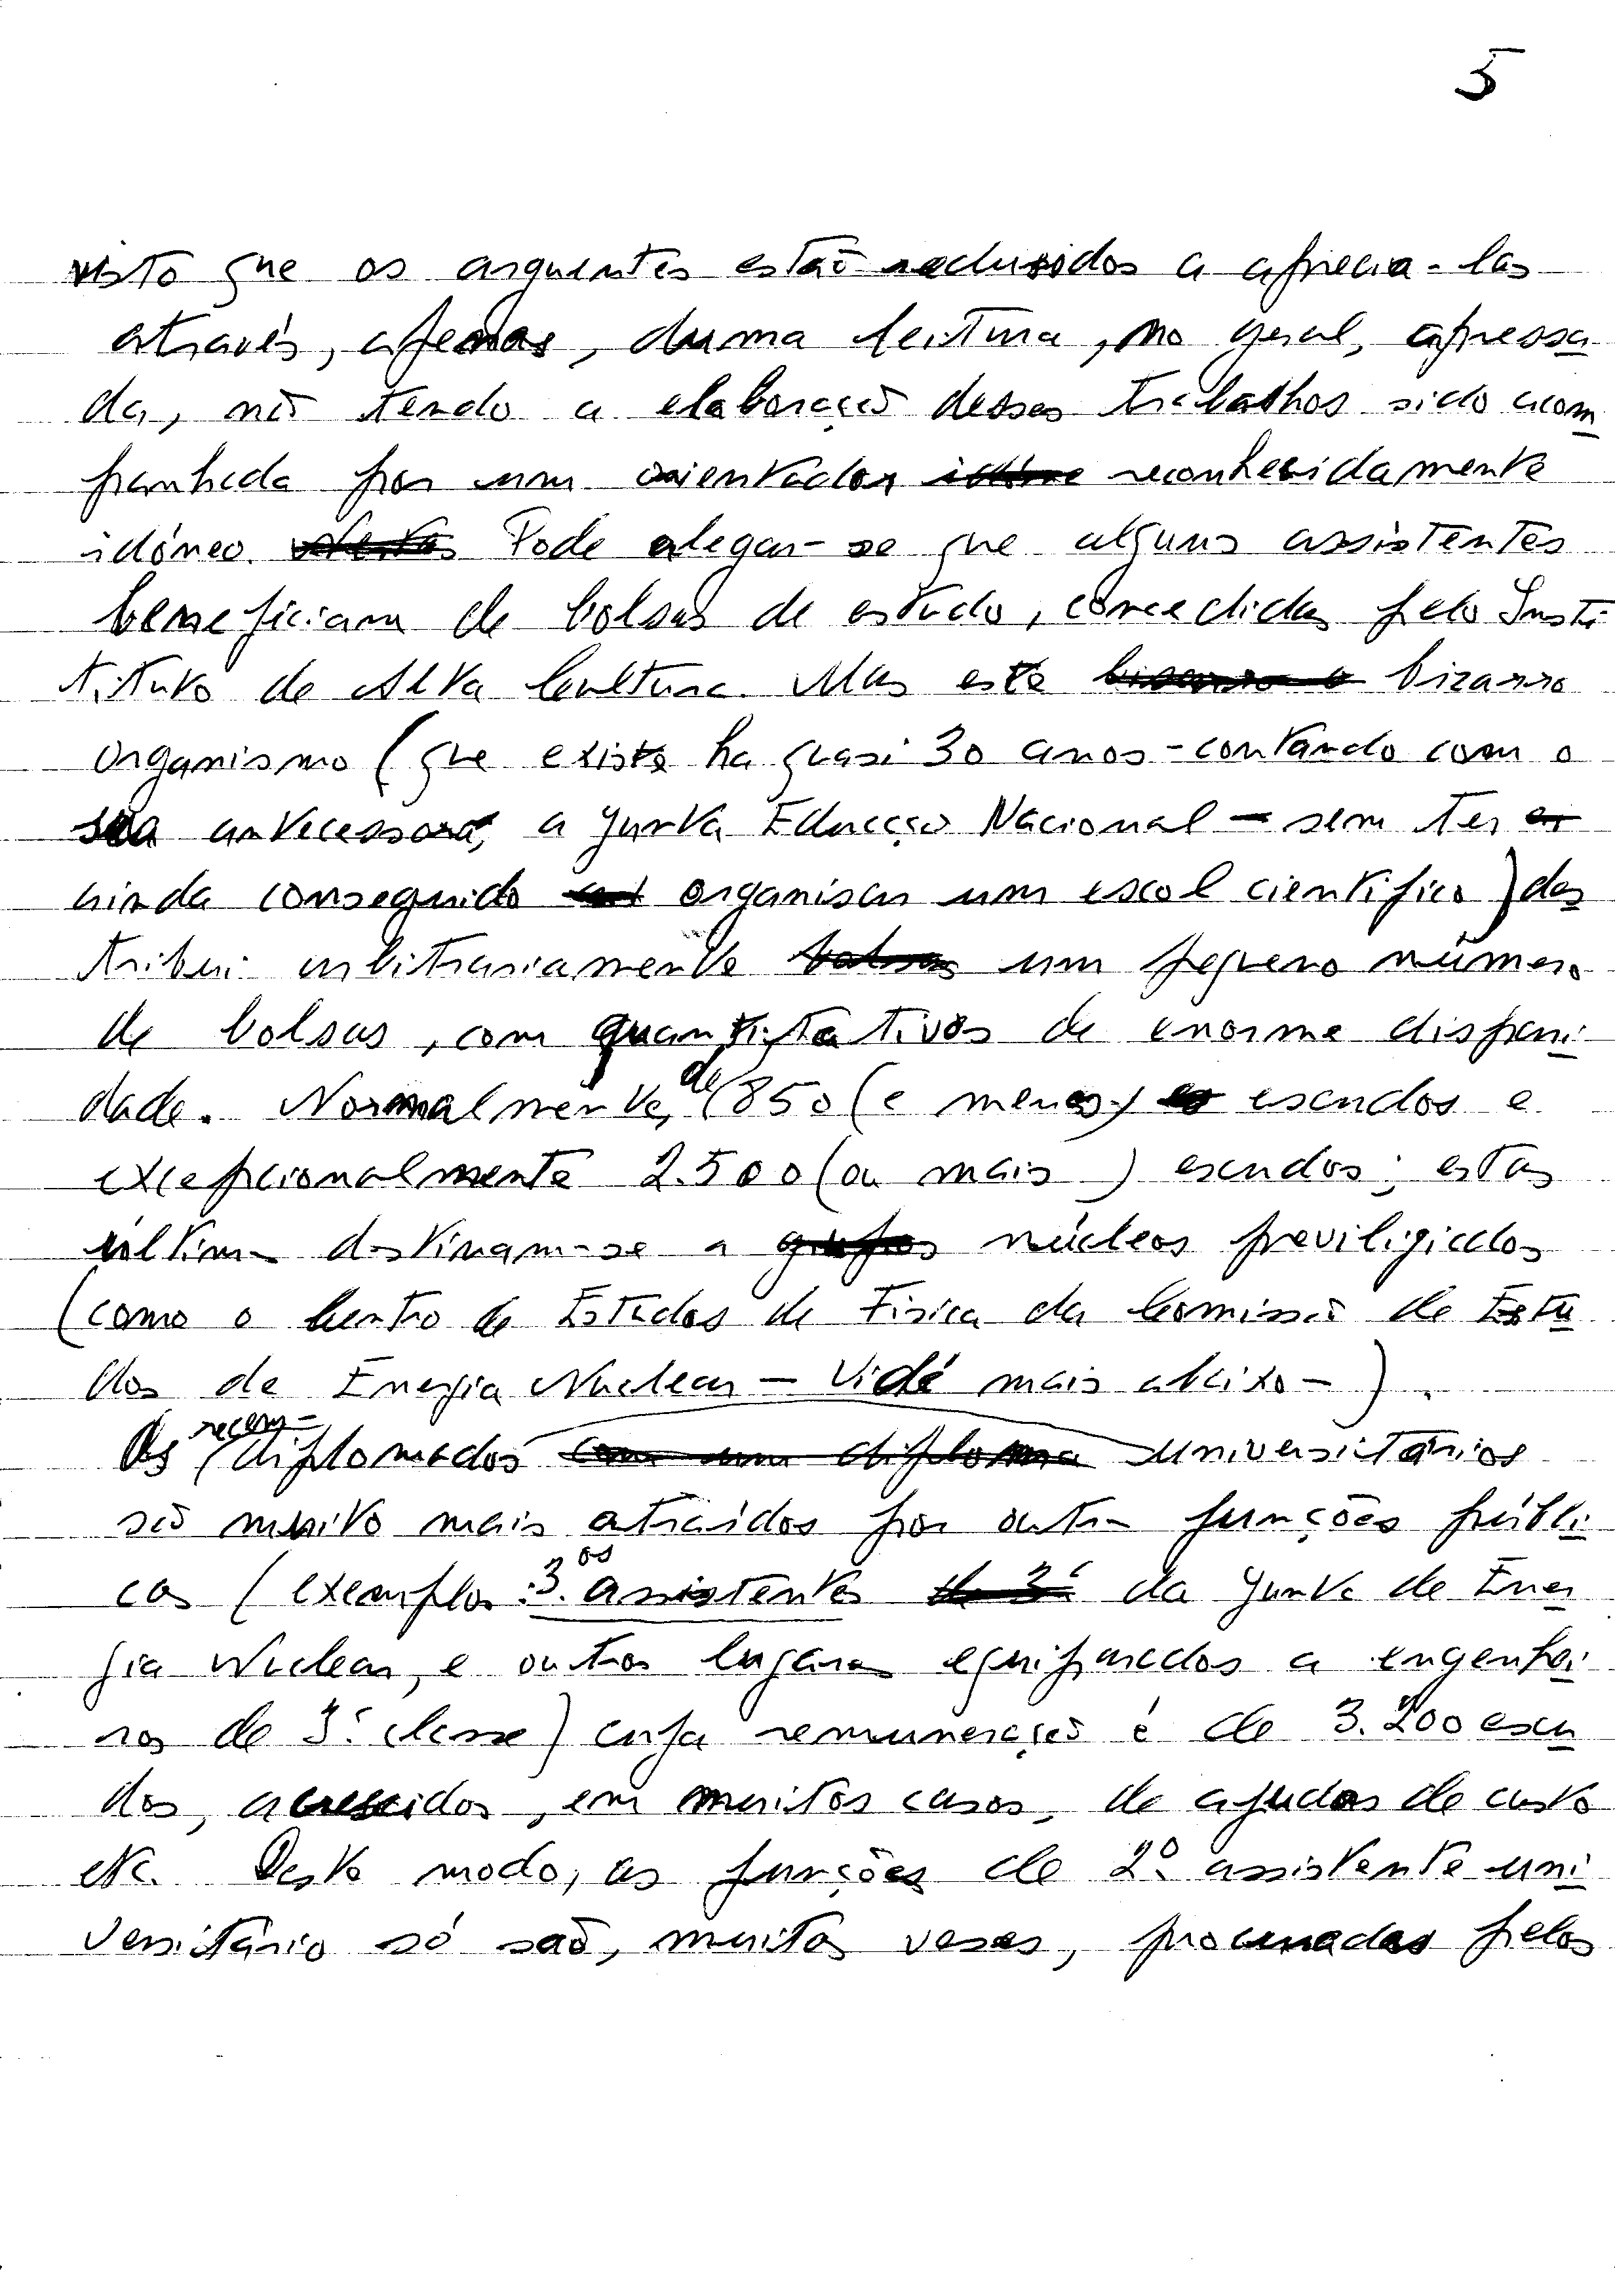 5
visto que os arguentes estão reduzidos a aprecia-las
através, apenas, duma leitura, no geral, apressa
da, não tendo a elaboração desses trabalhos sido acom
panhada por um orientador reconhecidamente
idóneo. Pode alegar-se que alguns assistentes
beneficiam de bolsas de estudo, concedidas pelo Insti
tituto de Alta Cultura. Mas este bizarro
organismo (que existe ha quasi 30 anos - contando com o
sua antecessora, a Junta Educação Nacional - sem ter
ainda conseguido organisar um escol cientifico) des
tribui arbitrariamente um pequeno número
de bolsas, com quantitativos de enorme dispari
dade. Normalmente, de 850 (e menos) escudos e
excepcionalmente 2.500 (ou mais) escudos; estas
últimas destinam-se a núcleos previligiados
(como o Centro de Estudos de Física da Comissão de Estu
dos de Energia Nuclear - Vidé mais abaixo -).
Os recem-diplomados universitários
são muito mais atraídos por outras funções públi
cas (exemplos: 3.os assistentes da Junta de Ener
gia Nuclear, e outros lugares equiparados a engenhei
ros de 3ª classe) cuja remuneração é de 3.200 escu
dos, acrescidos, em muitos casos, de ajudas de custo
etc. Deste modo, as funções de 2º assistente uni
versitário só são, muitas vezes, procuradas pelos